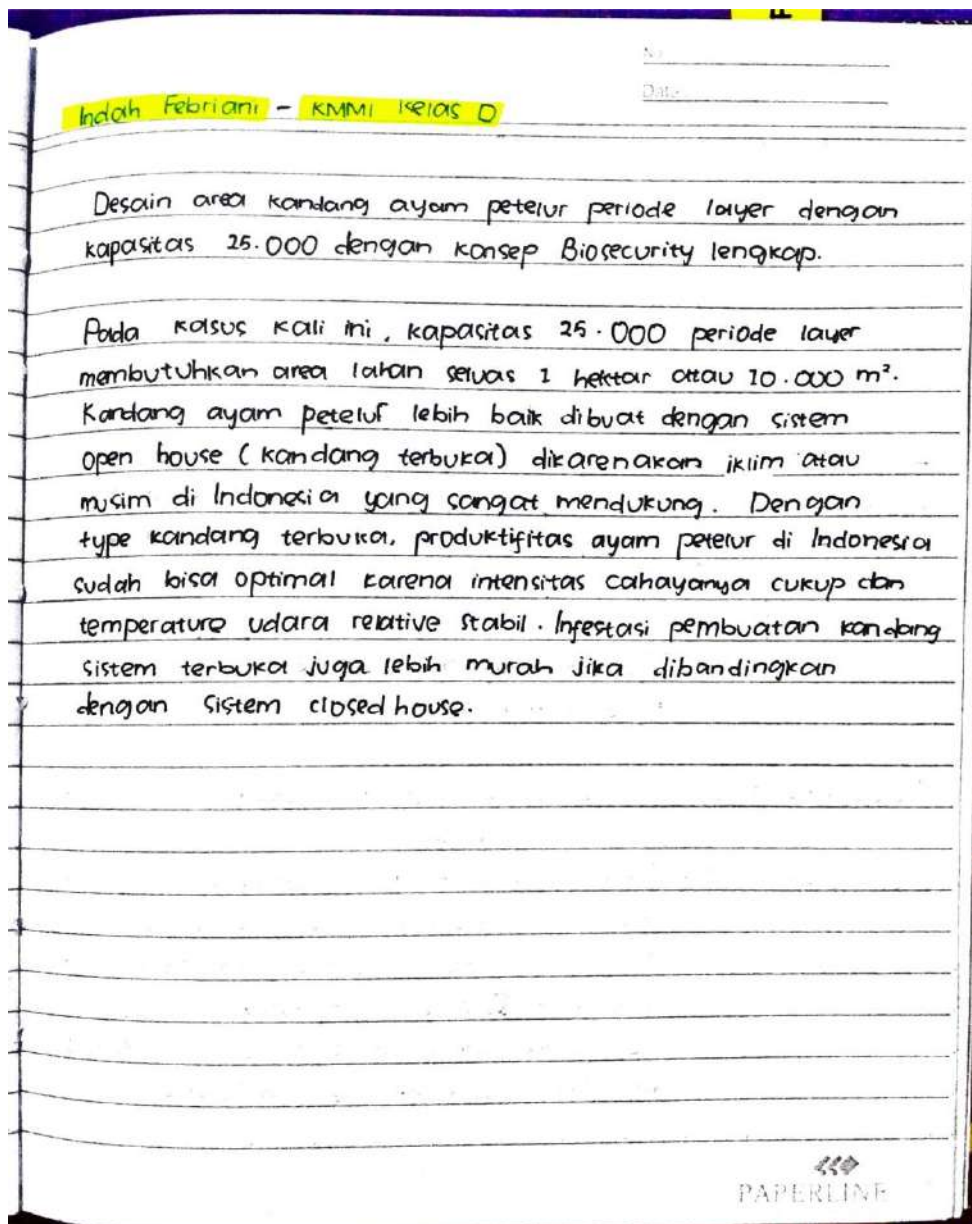 No
Date
Indah Febriani - KMMI Kelas D
Desain area kandang ayam petelur periode layer dengan
kapasitas 25.000 dengan konsep Biosecurity lengkap.
Pada kasus kali ini, kapasitas 25.000 periode layer
membutuhkan area lahan seluas 1 hektar atau 10.000 m².
Kandang ayam petelur lebih baik dibuat dengan sistem
open house (kandang terbuka) dikarenakan iklim atau
musim di Indonesia yang sangat mendukung. Dengan
type kandang terbuka, produktifitas ayam petelur di Indonesia
sudah bisa optimal karena intensitas cahayanya cukup dan
temperature udara relative stabil. Infestasi pembuatan kandang
sistem terbuka juga lebih murah jika dibandingkan
dengan sistem closed house.
PAPERLINE